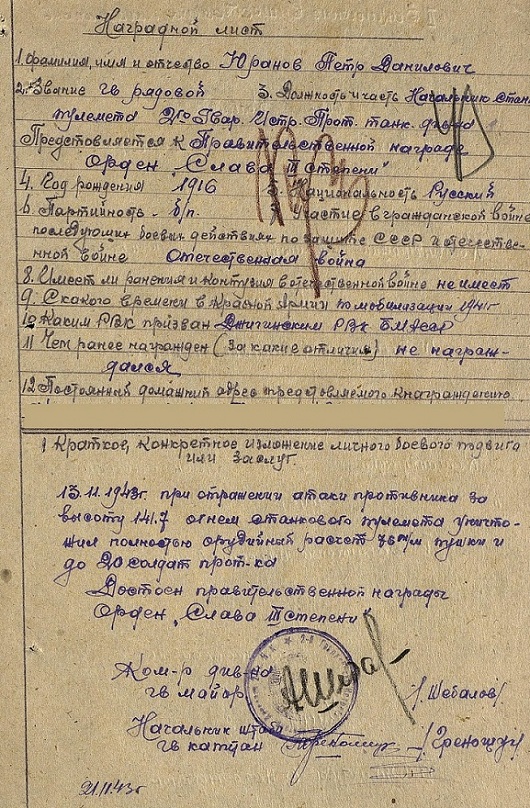 Наградной лист
1. Фамилия, имя и отчество Юранов Петр Данилович
2. Звание гв рядовой 3. Должность и часть Начальник стан.
пулемета Гвар. Истр. Прот. танк. див-на
Представляется к Правительственной награде
"Орден Слава III Степени"
4. Год рождения 1916 5. Национальность Русский
6. Партийность - б/п. 7. Участие в гражданской войне
последующих боевых действиях по защите СССР и отечестве-
нной войне Отечественная война
8. Имеет ли ранения и контузия в отечественной войне не имеет
9. С какого времени в Красной Армии по мобилизации 1941г
10 Каким РВК призван РВК БМАССР
11 Чем ранее награжден (за какие отличия) не награж-
дался
12 Постоянный домашний адрес представляемого к награждению
1 Краткое, конкретное изложение личного боевого подвига
или заслуг.
13.11.1943г. при отражении атаки противника за
высоту 141.7 огнем станкового пулемета уничто-
жил полностью орудийный расчет 76 м/м пушки и
до 20 солдат прот-ка
Достоен правительственной награды
Орден "Слава III степени"
Ком-р див-на
гв майор /Шебалов/
Начальник штаба
гв капитан
21.11.43г